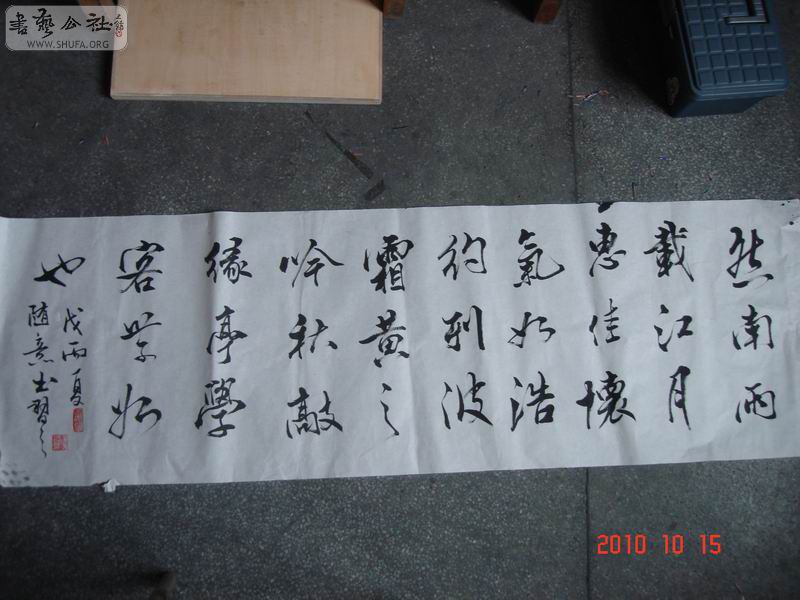 書藝公社
WWW.SHUFA.ORG
然南雨
載江月
惠佳懷
氣如浩
約到波
霜黄之
吟秋敲
緣亭學
客常如
也
戊雨夏
随意出習之
2010 10 15